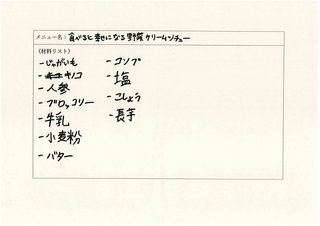 メニュー名：食べると幸せになる野菜クリームシチュー
《材料リスト》
-じゃがいも
-キノコ
-人参
-ブロッコリー
-牛乳
-小麦粉
-バター
-コンソブ
-塩
-こしょう
-長芋